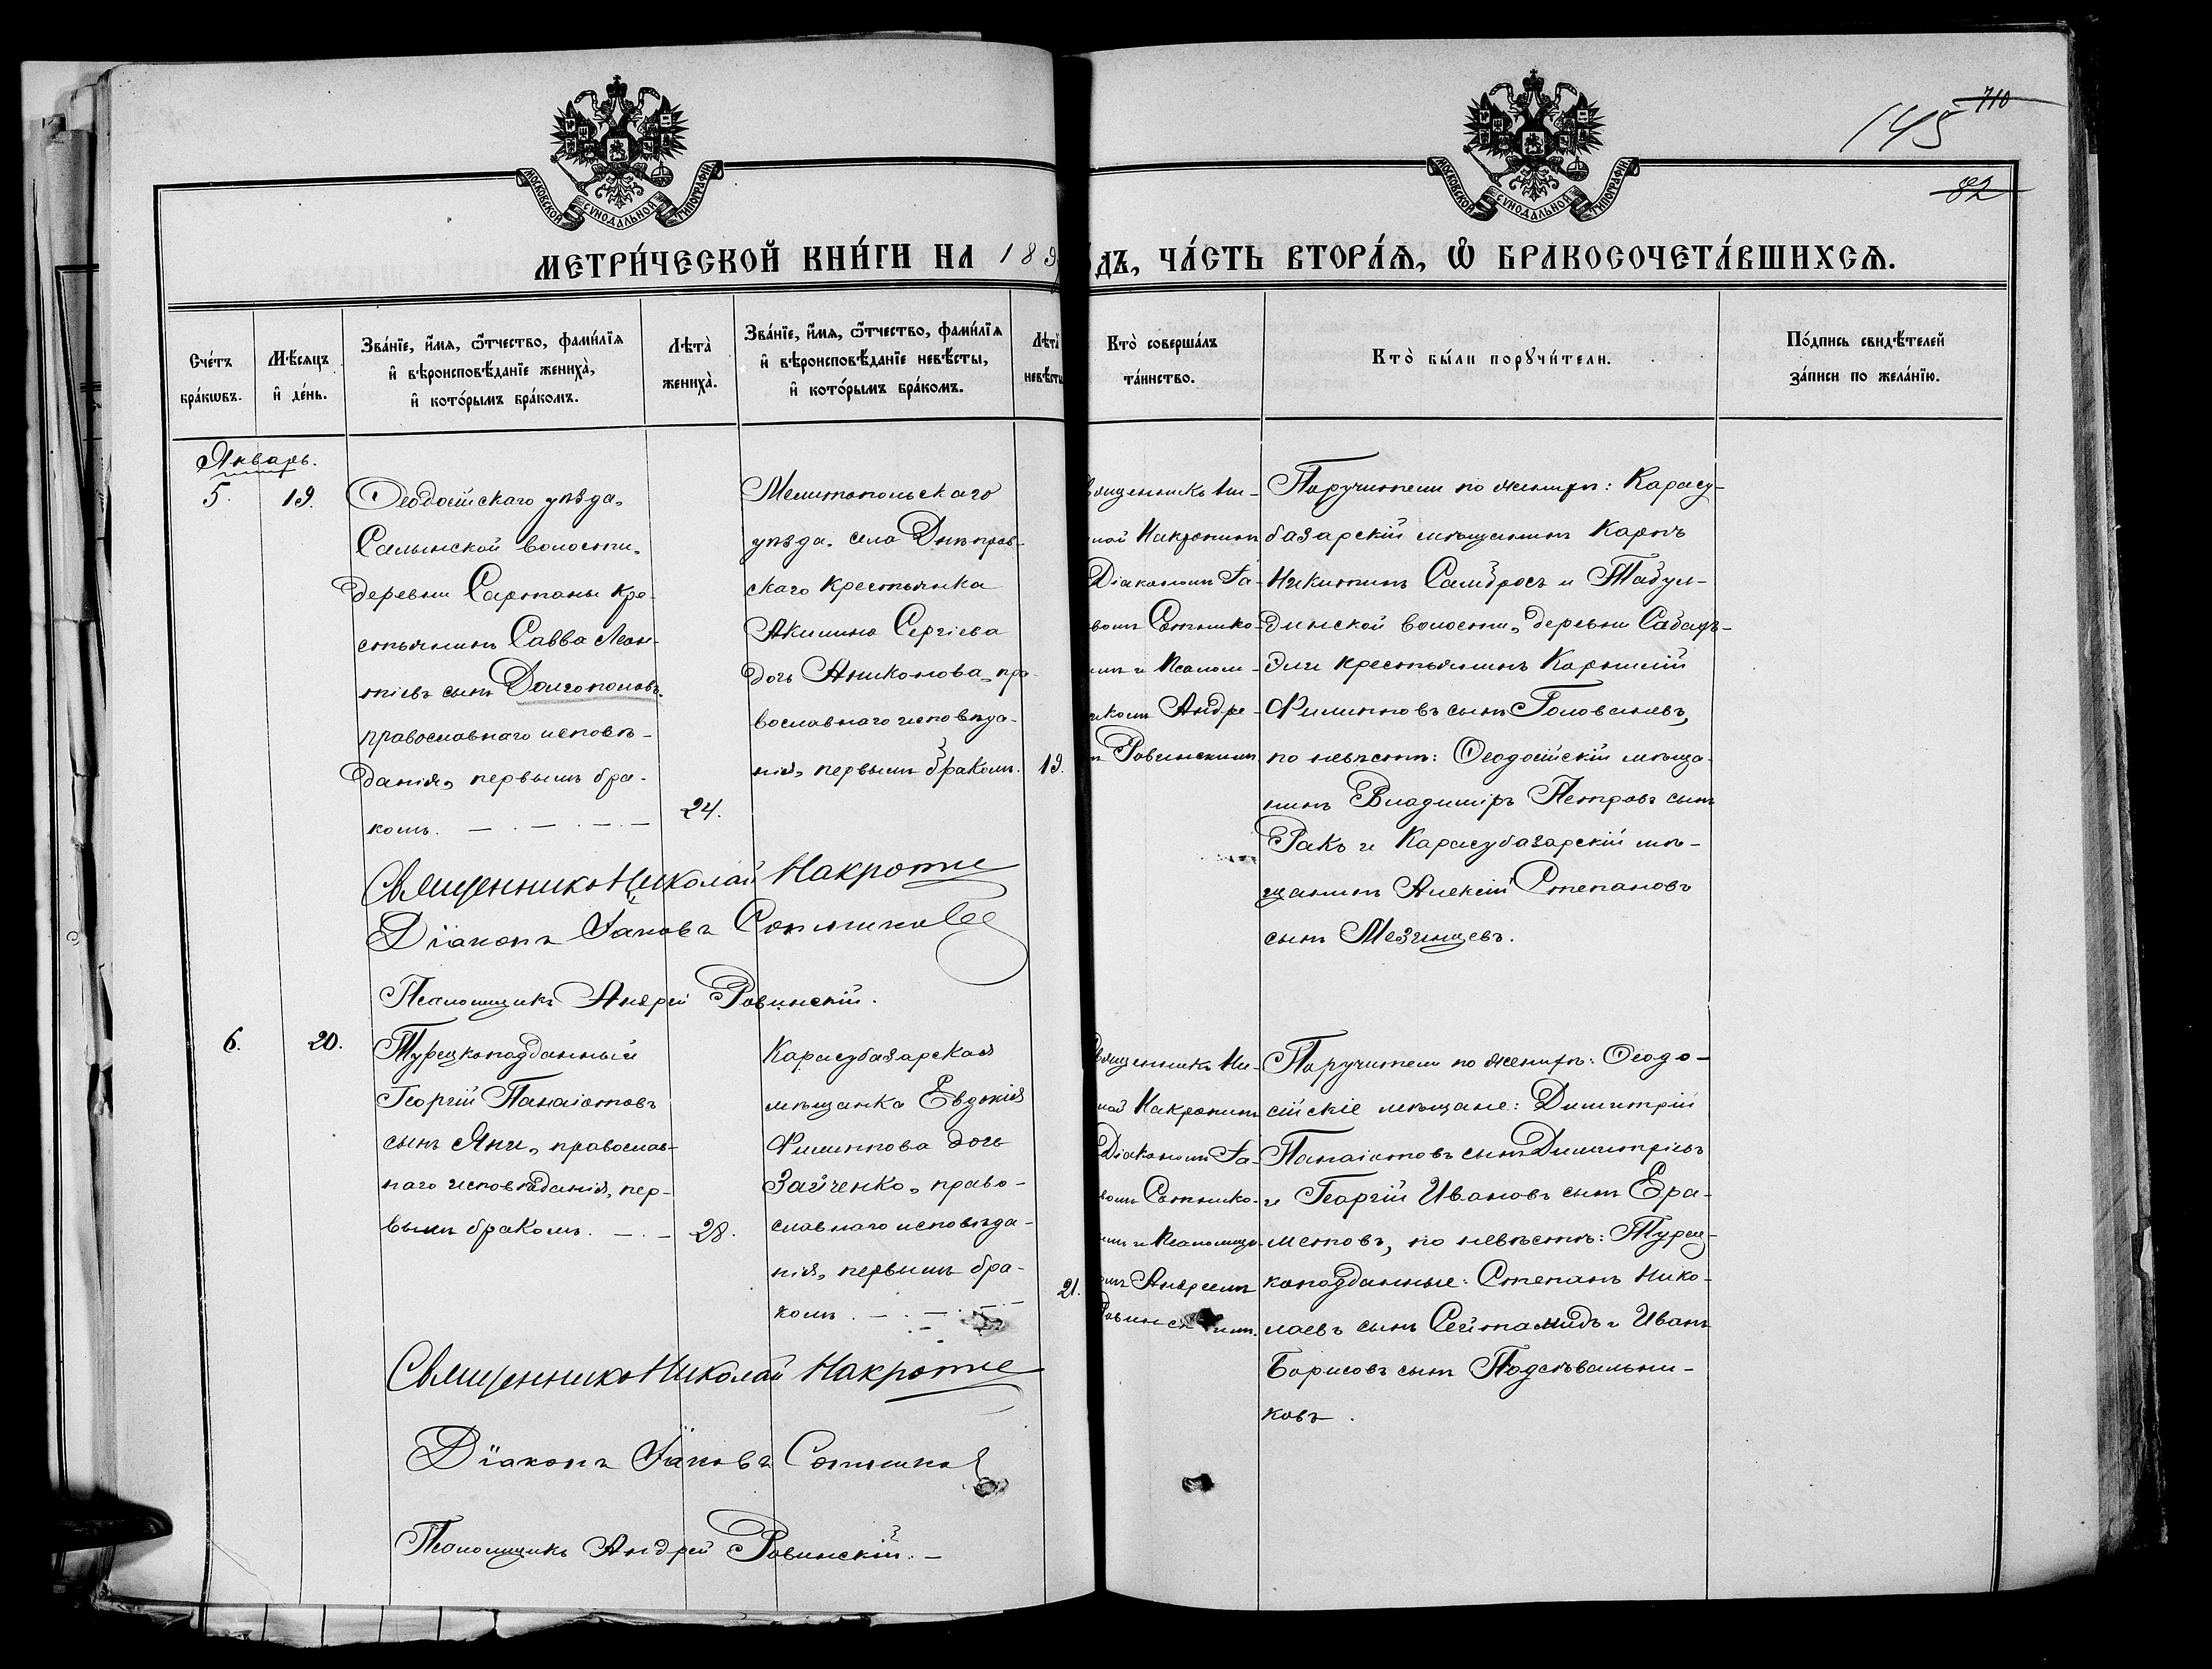 145 710
82
МОСКОВСКОЙ СУНОДАЛЬНОЙ ТИПОГРАФІИ
МОСКОВСКОЙ СУНОДАЛЬНОЙ ТИПОГРАФІИ
МЕТРИ́ЧЕСКОЙ КНИ́ГИ НА 189 ДЪ, ЧА́СТЬ ВТОРА́Ѧ, Ѡ҆ БРАКОСОЧЕТА́ВШИХСѦ.
Сче́тъ
бра́кѡвъ.
Мѣ́сяцъ
и҆ де́нь.
Зва́нїе, и҆́мѧ, ѻ҆́тчество, фами́лїѧ
и҆ вѣроисповѣ́данїе жениха̀,
и҆ кото́рымъ бра́комъ.
Лѣта̀
жениха̀.
Зва́нїе, и҆́мѧ, ѻ҆́тчество, фами́лїѧ
и҆ вѣроисповѣ́данїе невѣ́сты,
и҆ кото́рымъ бра́комъ.
Лѣта̀
невѣ́сты
Кто̀ соверша́лъ
та́инство.
Кто̀ бы́ли порꙋчи́тели.
По́дпись свидѣ́телей
за́писи по жела́нїю.
Январь.
5. 19.
Ѳеодосійскаго уѣзда,
Салынской волости,
деревни Сартаны кре-
стьянинъ Савва Леон-
тіевъ сынъ Долгополовъ,
православнаго исповѣ-
данія, первымъ бра-
комъ. — . — . — . —
24.
Мелитопольскаго
уѣзда, села Днѣпров-
скаго крестьянка
Акилина Сергіева
дочь Аниконова, пра-
вославнаго исповѣда-
нія, первымъ бракомъ.
19.
вященникъ Ни-
лай Макротит
Діакономъ Іа-
вомъ Сотнико-
имъ и Псалом-
икомъ Андре-
ъ Ровинскимъ
Поручители по женихѣ: Карасу-
базарскій мѣщанинъ Карпъ
Никитинъ Самдросъ и Табул-
динской волости, деревни
крестьянинъ Корнилій
Филипповъ сынъ Головачевъ,
по невѣстѣ: Ѳеодосійскій мѣща-
нинъ Владиміръ Петровъ сынъ
Ракъ и Карасубазарскій мѣ-
щанинъ Алексій Степановъ
сынъ Мезинцевъ.
Священникъ Николай Макротие
Діаконъ Іаковъ Сотников
Псаломщикъ Андрей Ровинскій.
6. 20.
Турецкоподданный
Георгій Панаіотовъ
сынъ Яни, православ-
наго исповѣданія, пер-
вымъ бракомъ. — . —
28.
Карасубазарская
мѣщанка Евдокія
Филиппова дочь
Зайченко, право-
славнаго исповѣда-
нія, первымъ бра-
комъ. — . — . — . —
21.
вященникъ Ни-
лай Макротит
Діакономъ Іа-
вомъ Сотнико-
имъ и Псаломщи-
омъ Андреемъ
Ровинскимъ.
Поручители по женихѣ: Ѳеодо-
сійскіе мѣщане: Димитрій
Панаіотовъ сынъ Димитріевъ
и Георгій Ивановъ сынъ Ера-
метовъ, по невѣстѣ: Турец-
коподданные: Степанъ Нико-
лаевъ сынъ Сейтамидъ и Иванъ
Борисовъ сынъ Подсѣвальни-
ковъ.
Священникъ Николай Макротие
Діаконъ Іаковъ Сотников
Псаломщикъ Андрей Ровинскій. —